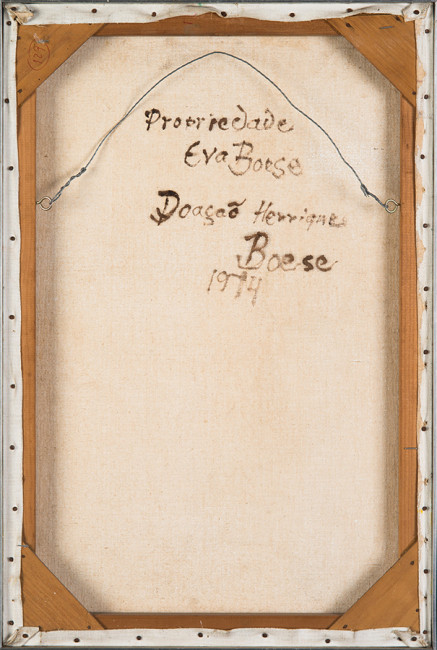 Propriedade
Eva Boese
Doação Henrique
Boese
1974